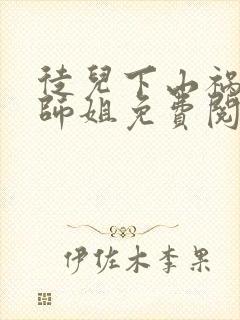 徒兒下山禍
師姐免費閱
伊佐木李果